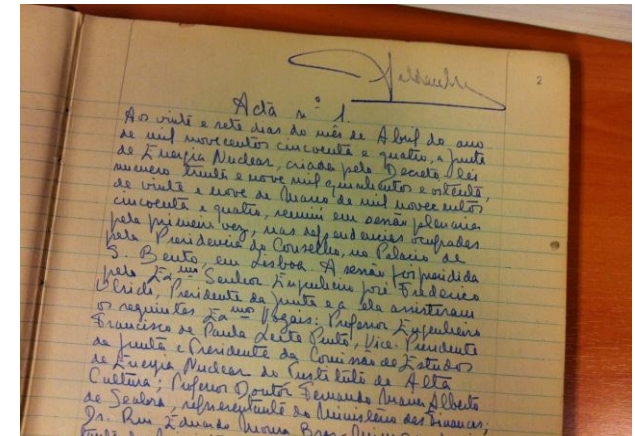 2
Acta nº 1
Aos vinte e sete dias do mês de Abril do ano
de mil novecentos cincoenta e quatro, a Junta
de Energia Nuclear, criada pelo Decreto-lei
numero trinta e nove mil quinhentos e oitenta,
de vinte e nove de Março de mil novecentos
cincoenta e quatro, reuniu em sessão plenaria
pela primeira vez, nas dependencias ocupadas
pela Presidencia do Conselho, no Palacio de
S. Bento, em Lisboa. A sessão foi presidida
pelo Exmo Senhor Engenheiro José Frederico
Ulrich, Presidente da Junta e a ela assistiram
os seguintes Exmos Vogais: Professor Engenheiro
Francisco de Paula Leite Pinto, Vice-Presidente
da Junta e Presidente da Comissão de Estudos
de Energia Nuclear do Instituto de Alta
Cultura; Professor Doutor Fernando Maria Alberto
de Seabra, representante do Ministério das Finanças;
Dr. Ruy Eduardo Moura Braz